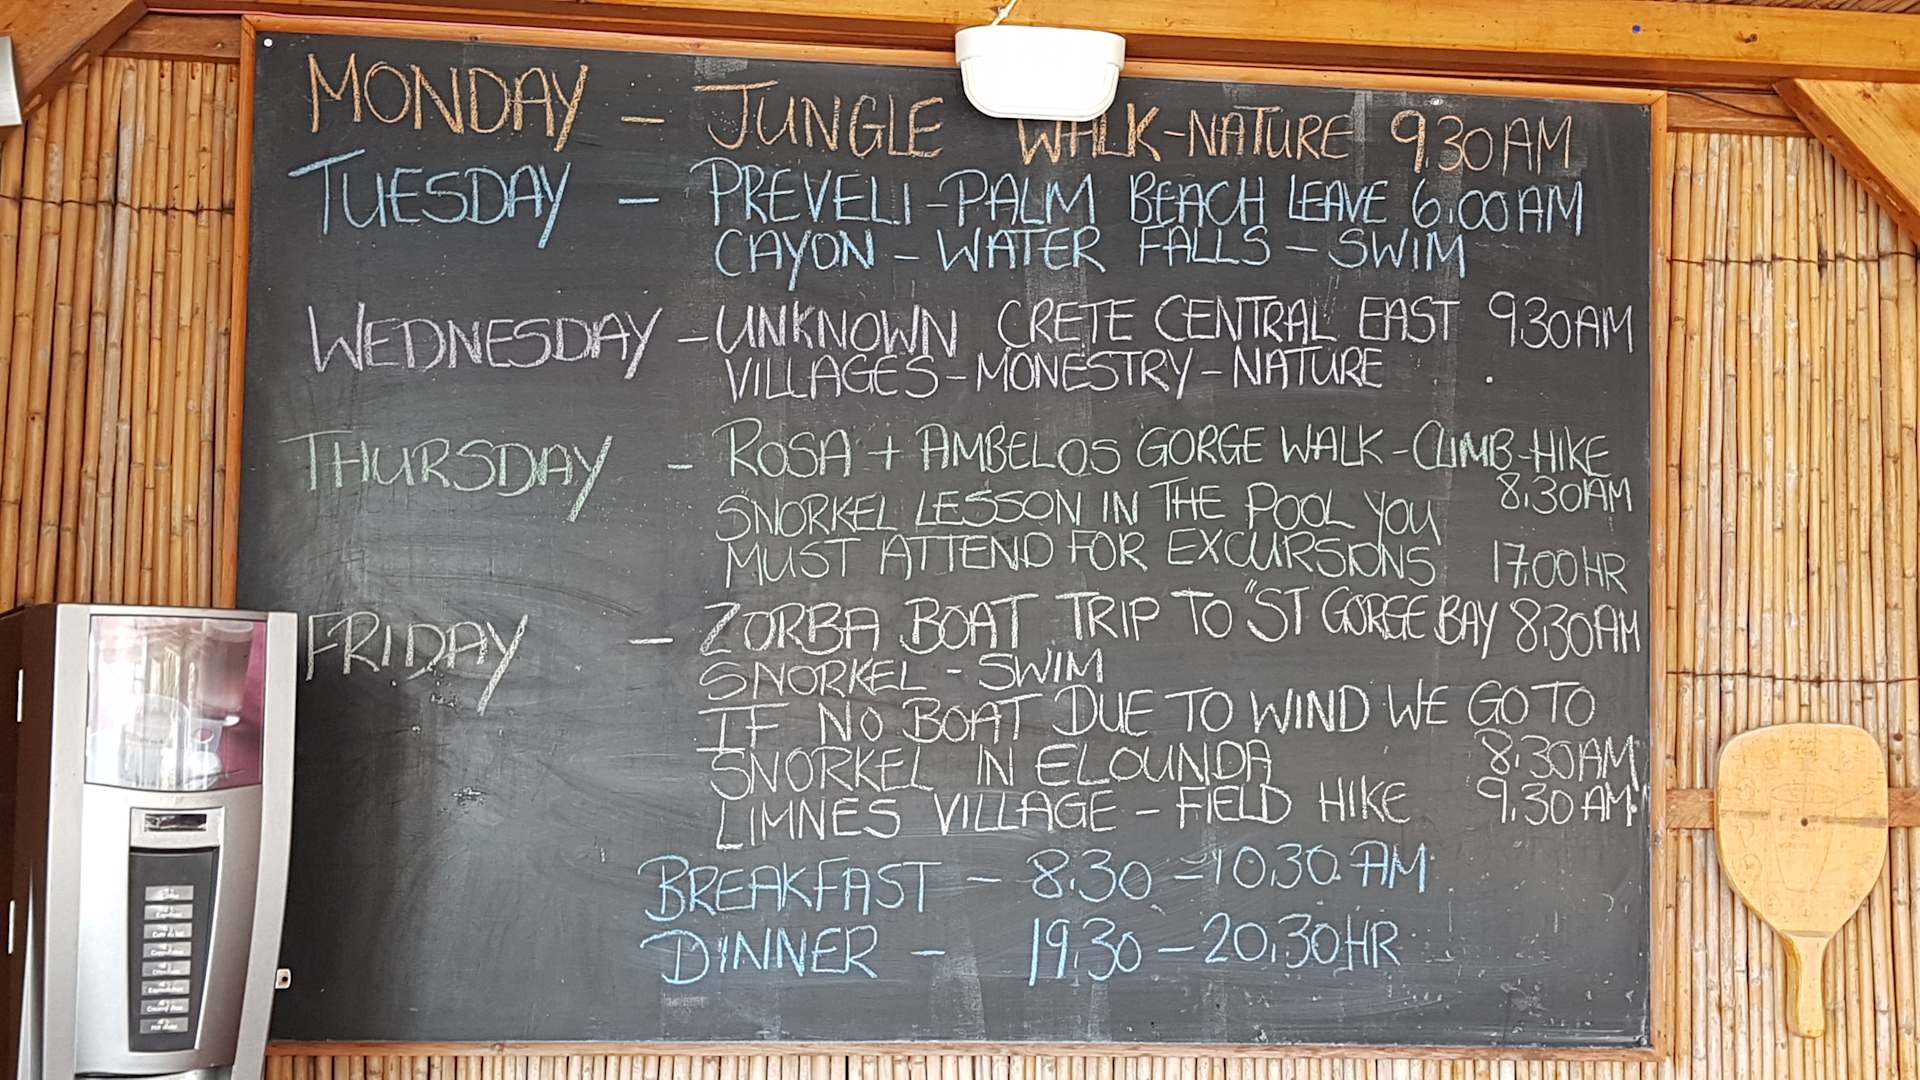 MONDAY - JUNGLE WALK-NATURE 9.30 AM
TUESDAY - PREVELI-PALM BEACH LEAVE 6.00 AM
CAYON - WATER FALLS - SWIM
WEDNESDAY - UNKNOWN CRETE CENTRAL EAST 9.30 AM
VILLAGES - MONESTRY - NATURE
THURSDAY - ROSA + AMBELOS GORGE WALK - CLIMB - HIKE
8.30 AM
SNORKEL LESSON IN THE POOL YOU
MUST ATTEND FOR EXCURSIONS 17.00 HR
FRIDAY - ZORBA BOAT TRIP TO "ST GORGE BAY 8.30 AM
SNORKEL - SWIM
IF NO BOAT DUE TO WIND WE GO TO
SNORKEL IN ELOUNDA 8.30 AM
LIMNES VILLAGE - FIELD HIKE 9.30 AM
BREAKFAST - 8.30 - 10.30. AM
DINNER - 19.30 - 20.30 HR